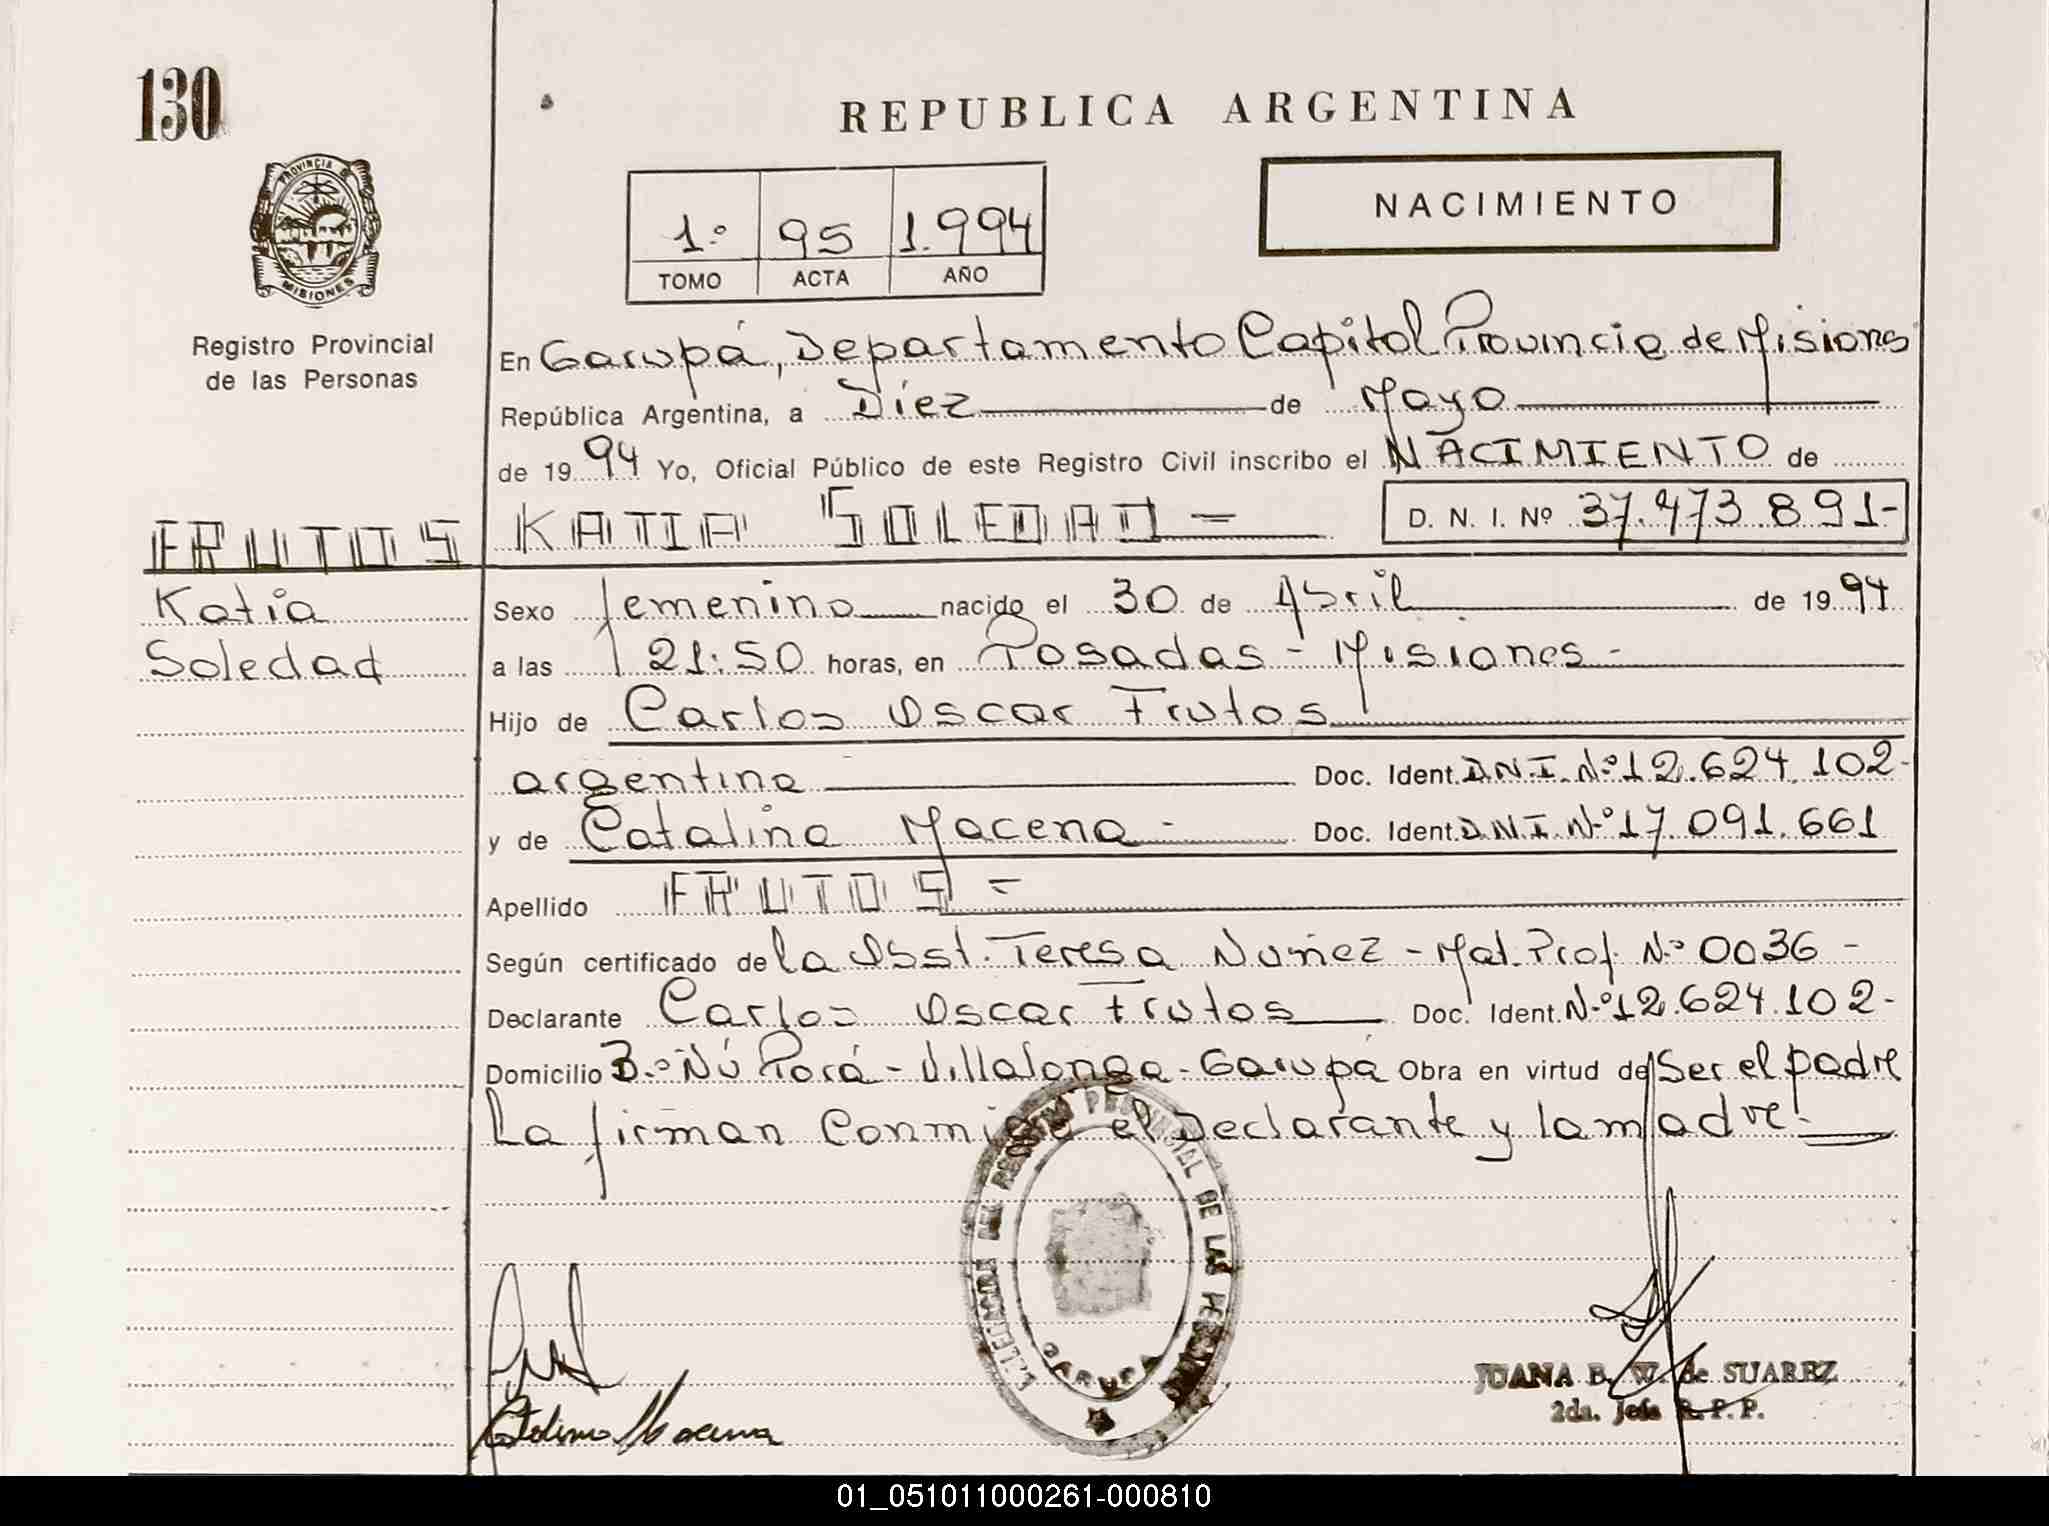 130
REPUBLICA ARGENTINA
PROVINCIA DE
MISIONES
Registro Provincial
de las Personas
NACIMIENTO
1º 95 1.994
TOMO ACTA AÑO
En Garupá, Departamento Capital Provincia de Misiones
República Argentina, a Diez de Mayo
de 1994 Yo, Oficial Público de este Registro Civil inscribo el NACIMIENTO de
FRUTOS KATIA SOLEDAD = D. N. I. Nº 37.473.891-
Katia
Soledad
Sexo femenino nacido el 30 de Abril de 1994
a las 21:50 horas, en Posadas - Misiones -
Hijo de Carlos Oscar Frutos
argentina Doc. Ident. D.N.I. Nº 12.624.102-
y de Catalina Macena - Doc. Ident. D.N.I. Nº 17.091.661
Apellido FRUTOS =
Según certificado de la Obst. Teresa Nuñez - Mat. Prof. Nº 0036 -
Declarante Carlos Oscar Frutos Doc. Ident. Nº 12.624.102-
Domicilio Bº Ñú Porá - Villalonga - Garupá Obra en virtud de Ser el padre
La firman Conmigo el Declarante y la madre.
DELEGACION DEL REGISTRO PROVINCIAL DE LAS PERSONAS
GARUPA
Catalina Macena
JUANA B. W. de SUAREZ
2da. Jefe R. P. P.
01_051011000261-000810